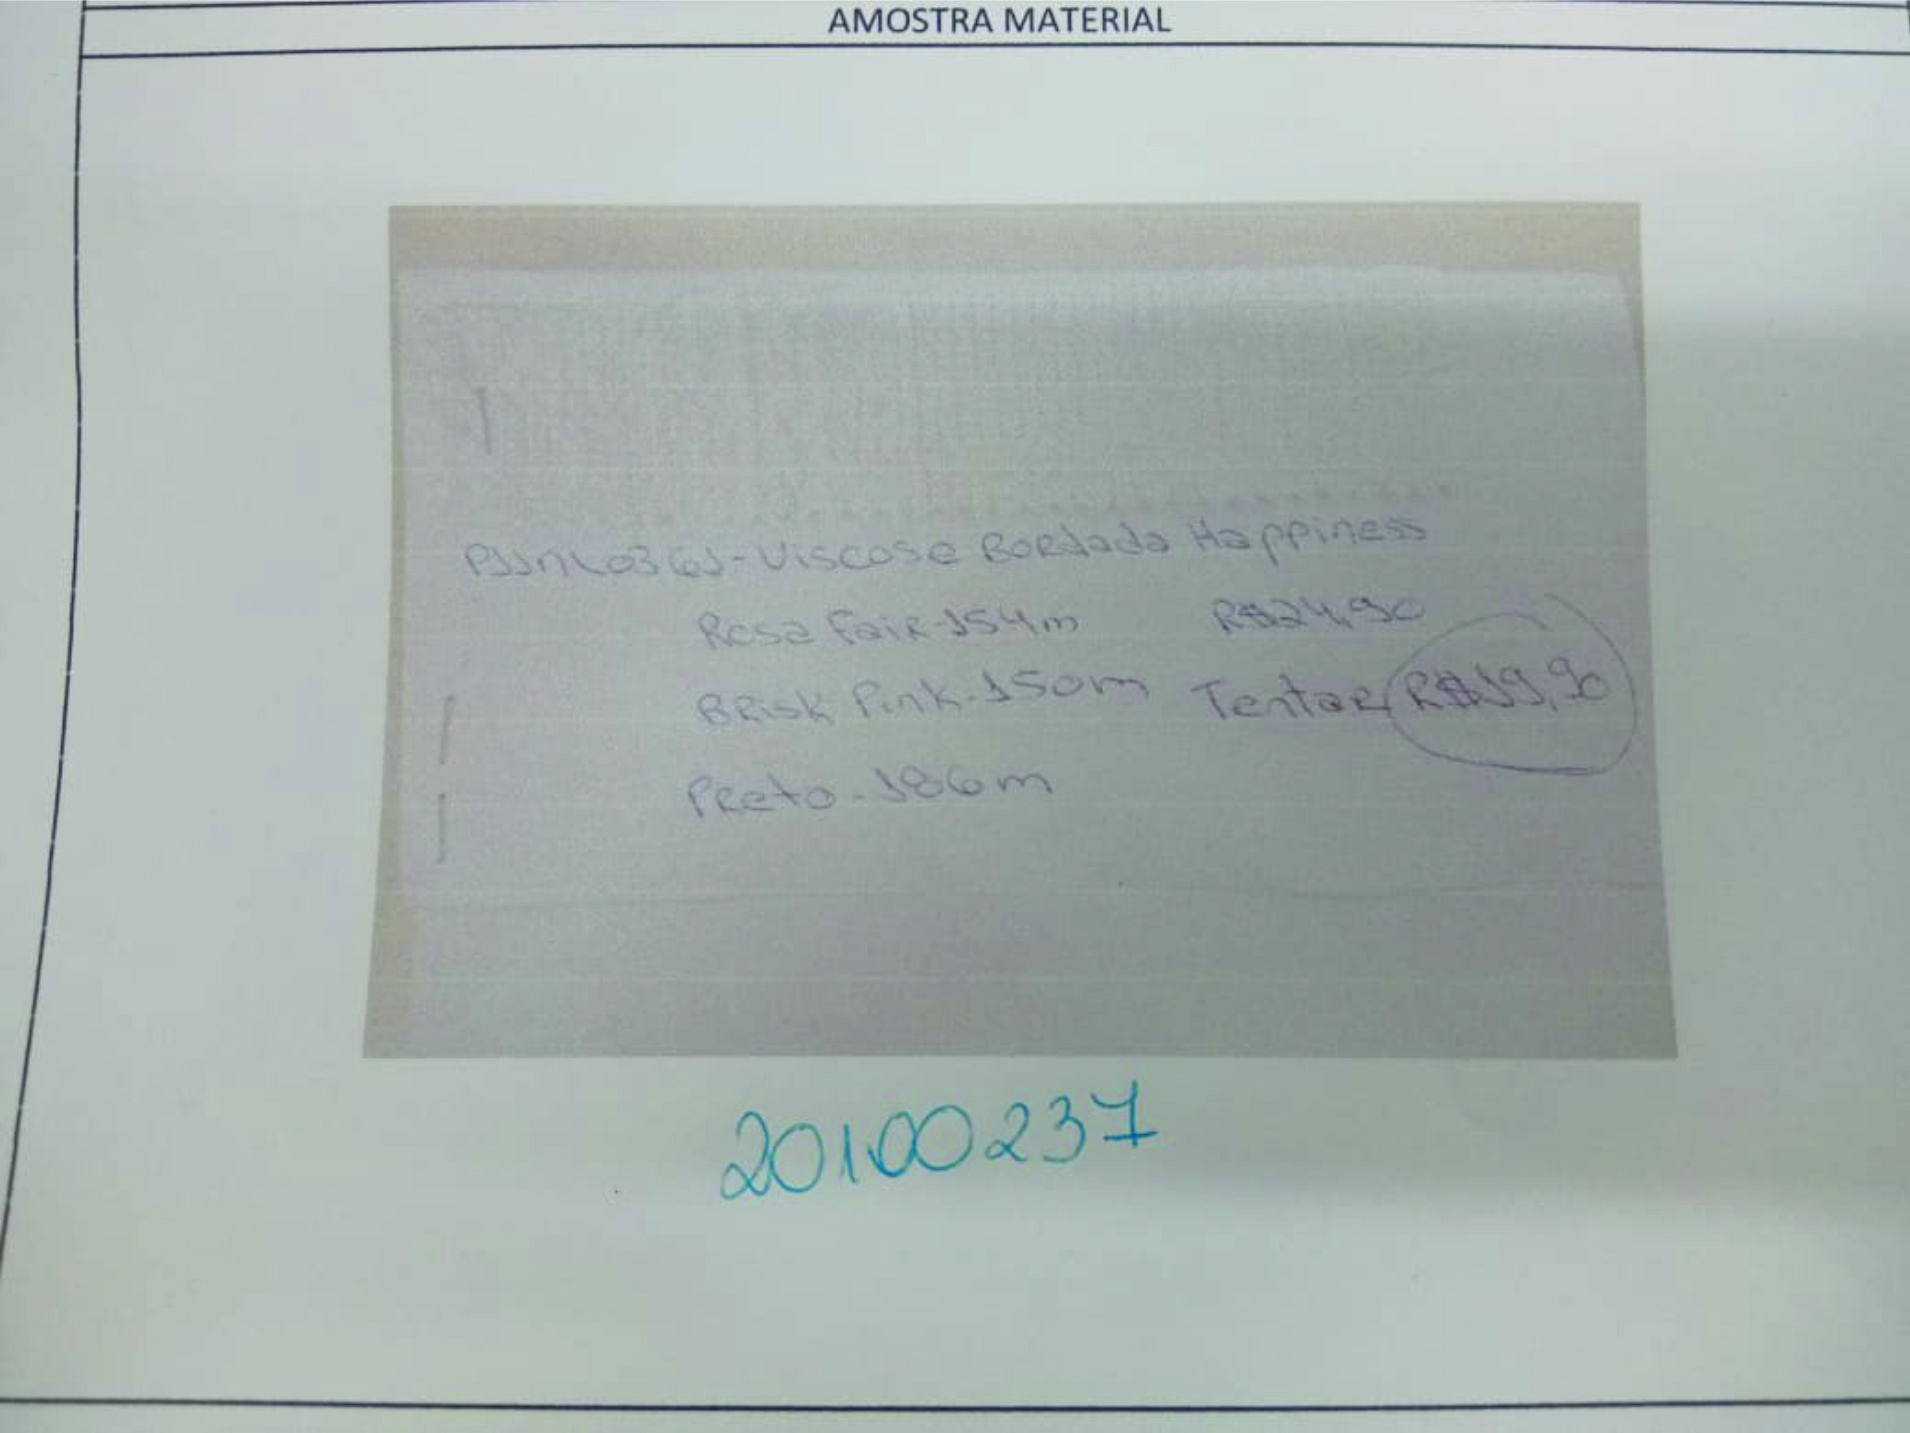 AMOSTRA MATERIAL
Viscose Bordada Happiness
Rosa Fair-154m R$24,90
Brisk Pink-150m Tentar R$19,90
Preto-186m
20100237